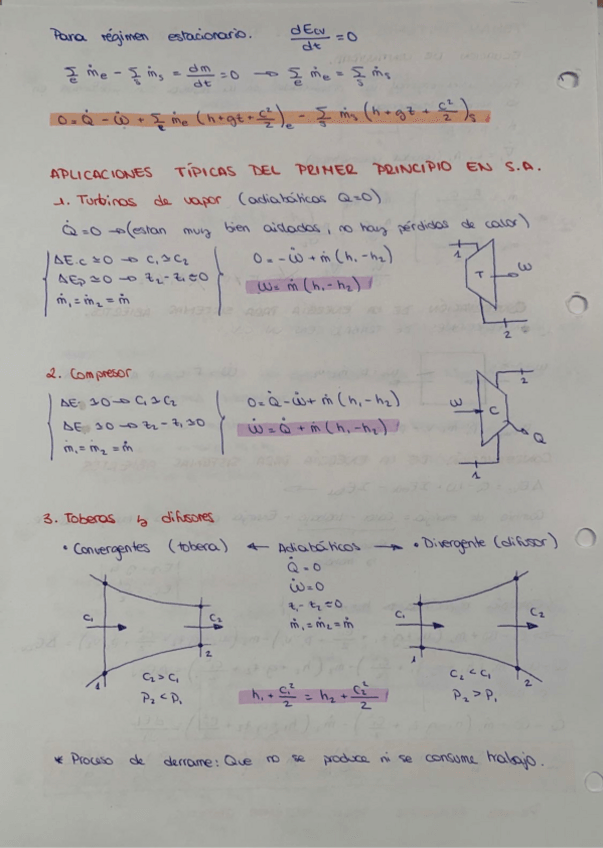 Para régimen estacionario. dEcv/dt = 0
Σe ṁe - Σs ṁs = dm/dt = 0 → Σe ṁe = Σs ṁs
0 = Q̇ - Ẇ + Σe ṁe (h + gz + c²/2)e - Σs ṁs (h + gz + c²/2)s
APLICACIONES TÍPICAS DEL PRIMER PRINCIPIO EN S.A.
1. Turbinas de vapor (adiabáticas Q=0)
Q̇ = 0 → (estan muy bien aisladas, no hay pérdidas de calor)
ΔE.c ≃ 0 → c₁ ≃ c₂
ΔEp ≃ 0 → z₂ - z₁ ≈ 0
ṁ₁ = ṁ₂ = ṁ
0 = -Ẇ + ṁ (h₁ - h₂)
Ẇ = ṁ (h₁ - h₂)
1
T
W
2
2. Compresor
ΔE ≃ 0 → c₁ ≃ c₂
ΔE ≃ 0 → z₂ - z₁ ≃ 0
ṁ₁ = ṁ₂ = ṁ
0 = Q̇ - Ẇ + ṁ (h₁ - h₂)
Ẇ = Q̇ + ṁ (h₁ - h₂)
2
W
C
Q
1
3. Toberas y difusores
• Convergentes (tobera) ← Adiabáticos → • Divergente (difusor)
Q̇ = 0
Ẇ = 0
z₁ - z₂ ≈ 0
ṁ₁ = ṁ₂ = ṁ
C₁
C₂
1
2
C₂ > C₁
P₂ < P₁
h₁ + c₁²/2 = h₂ + c₂²/2
C₁
C₂
1
2
C₂ < C₁
P₂ > P₁
* Proceso de derrame: Que no se produce ni se consume trabajo.